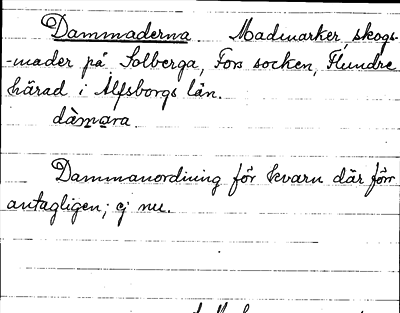 Dammaderna. Madmarker, skogs-
-mader på Solberga, Fors socken, Flundre
härad i Älfsborgs län.
dàmara
Dammanordning för kvarn där förr
antagligen; ej nu.